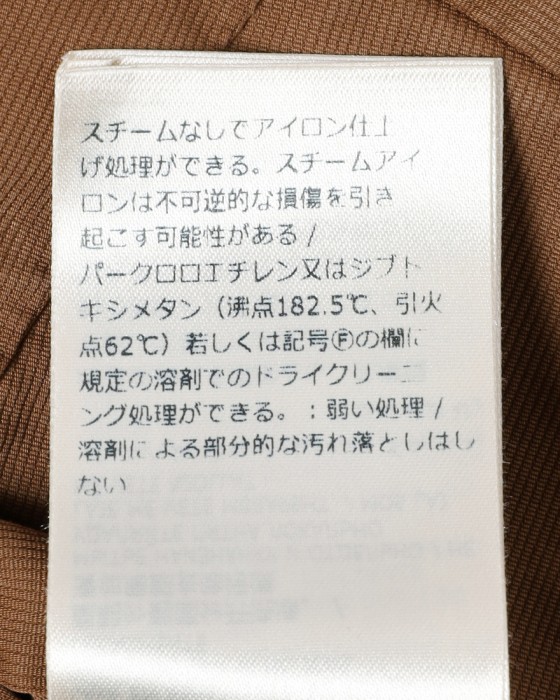 スチームなしでアイロン仕上
げ処理ができる。スチームアイ
ロンは不可逆的な損傷を引き
起こす可能性がある /
パークロロエチレン又はジブト
キシメタン（沸点182.5℃、引火
点62℃）若しくは記号Ⓕの欄に
規定の溶剤でのドライクリーニ
ング処理ができる。：弱い処理 /
溶剤による部分的な汚れ落としはし
ない